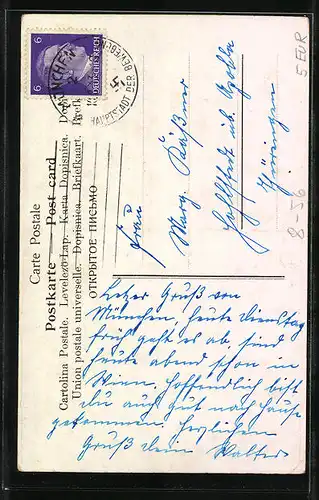 Carte Postale
Postkarte Post card
Cartolina Postale. Levelező-Lap. Karta Dopisnica.
Union postale universelle. Dopisnica. Briefkaart.
ОТКРЫТОЕ ПИСЬМО
6 6
DEUTSCHES REICH
MÜNCHEN
HAUPTSTADT DER BEWEGUNG
Frau
Marg. Käßner
Thüringen
5 EUR
8-56
Letzer Gruß von
München, heute Dienstag
früh geht es ab, sind
heute abend schon in
Wien. Hoffendlich bist
du auch gut nach Hause
gekommen. Herzlichen
Gruß dein Walter